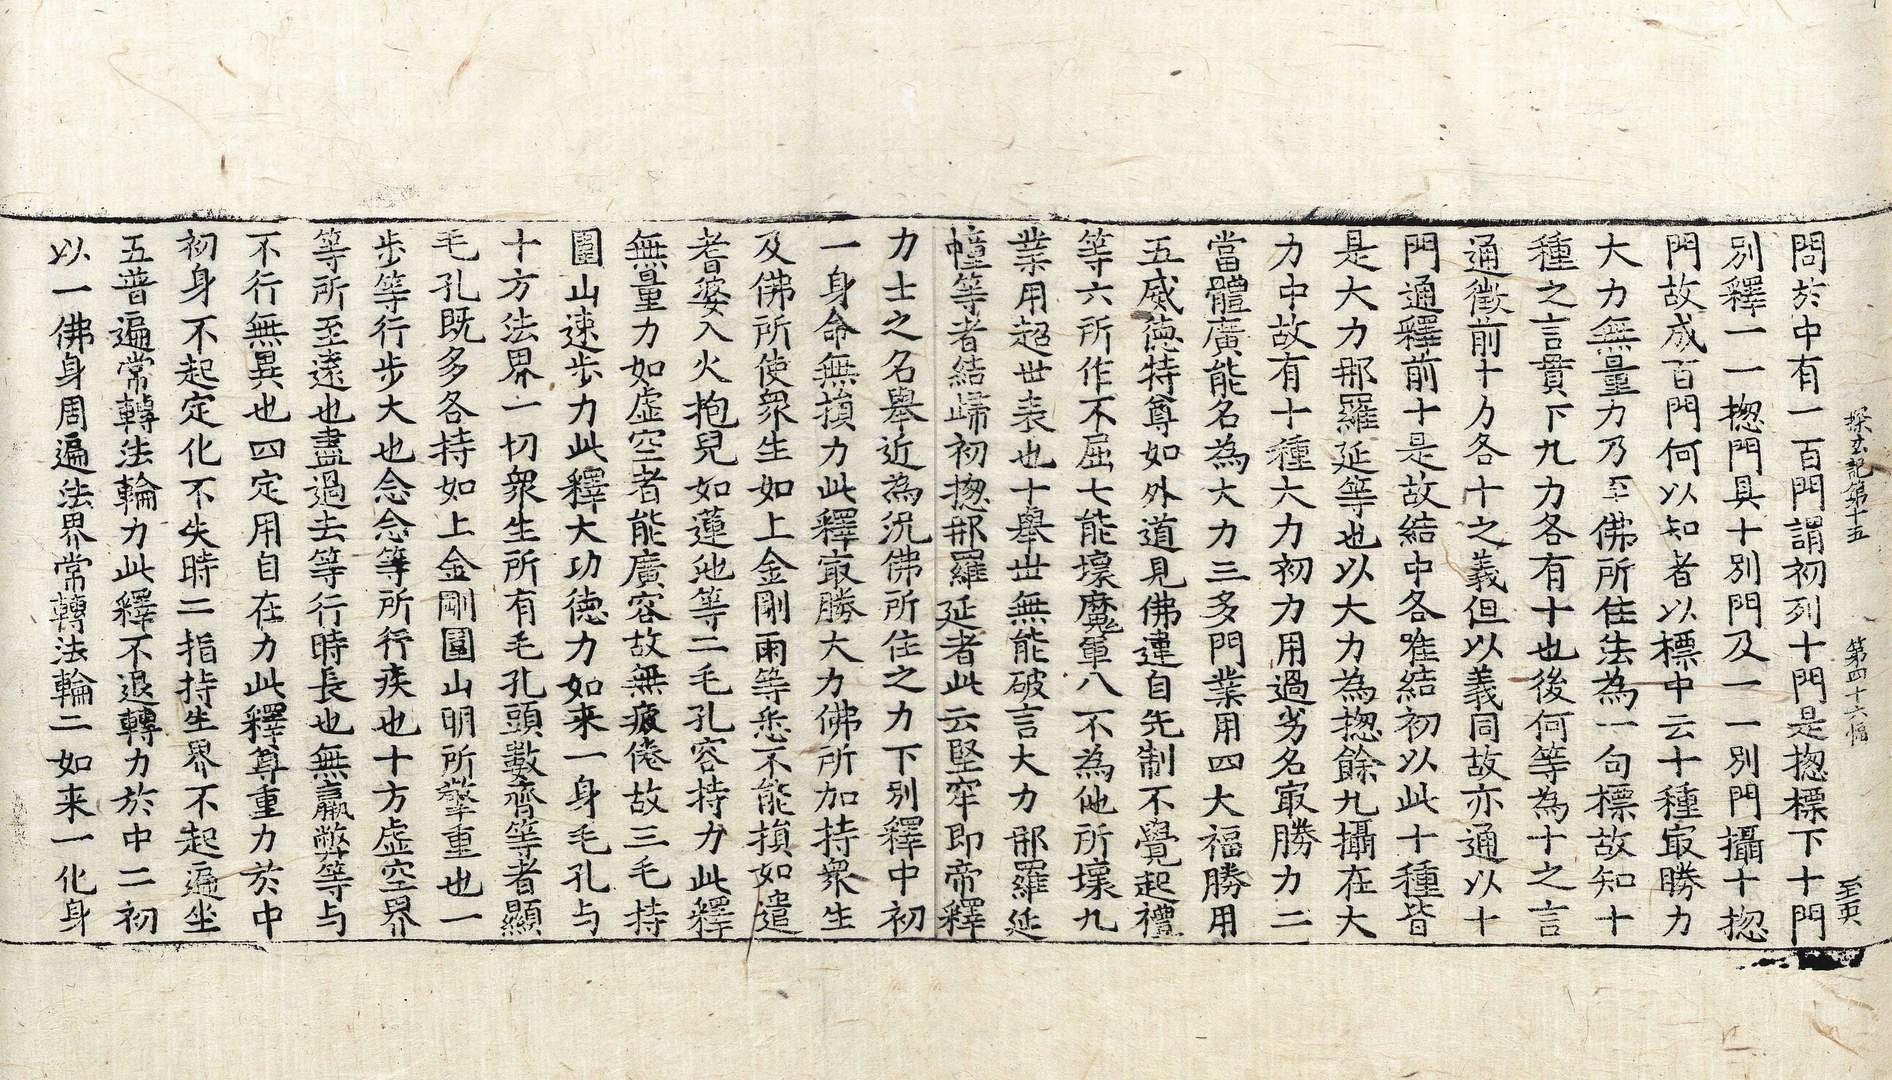 探玄記第十五 第四十六幅 至英
問於中有一百門謂初列十門是揔標下十門
別釋一一揔門具十別門及一一別門攝十揔
門故成百門何以知者以標中云十種㝡勝力
大力無量力乃至佛所住法為一句標故知十
種之言貫下九力各有十也後何等為十之言
通徵前十力各十之義但以義同故亦通以十
門通釋前十是故結中各唯結初以此十種皆
是大力那羅延等也以大力為揔餘九攝在大
力中故有十種大力初力用過劣名㝡勝力二
當體廣能名為大力三多門業用四大福勝用
五威德特尊如外道見佛違自先制不覺起禮
等六所作不屈七能壞魔軍八不為他所壞九
業用超世表也十舉世無能破言大力那羅延
幢等者結歸初揔那羅延者此云堅牢即帝釋
力士之名舉近為況佛所住之力下別釋中初
一身命無損力此釋㝡勝大力佛所加持衆生
及佛所使衆生如上金剛雨等悉不能損如遣
耆婆入火抱兒如蓮池等二毛孔容持力此釋
無量力如虛空者能廣容故無疲倦故三毛持
圍山速步力此釋大功德力如来一身毛孔与
十方法界一切衆生所有毛孔頭數齊等者顯
毛孔既多各持如上金剛圍山明所擎重也一
步等行步大也念念等所行疾也十方虛空界
等所至遠也盡過去等行時長也無羸弊等与
不行無異也四定用自在力此釋尊重力於中
初身不起定化不失時二指持坐界不起遍坐
五普遍常轉法輪力此釋不退轉力於中二初
以一佛身周遍法界常轉法輪二如来一化身